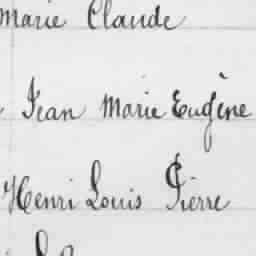 Marie Claude
Jean Marie Eugène
Henri Louis Pierre